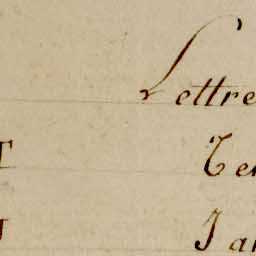 Lettre
T Ter
J Jan